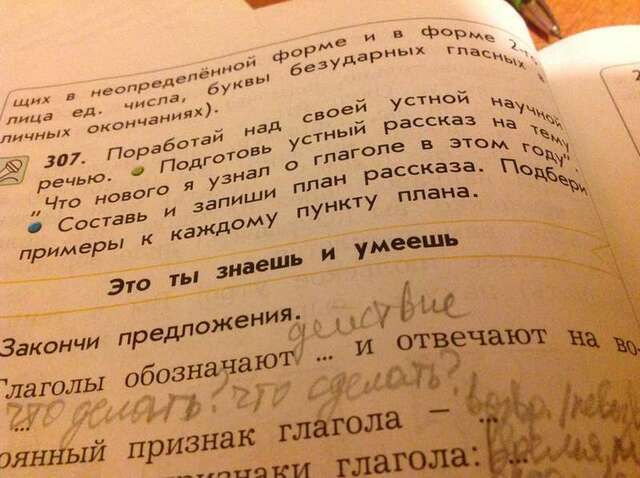 щих в неопределённой форме и в форме 2-го
лица ед. числа, буквы безударных гласных в
личных окончаниях).
307. Поработай над своей устной научной
речью. Подготовь устный рассказ на тему
„Что нового я узнал о глаголе в этом году".
Составь и запиши план рассказа. Подбери
примеры к каждому пункту плана.
Это ты знаешь и умеешь
Закончи предложения.
действие
Глаголы обозначают ... и отвечают на во-
что делать? что сделать?
...
оянный признак глагола – ...
признаки глагола: ...
время,
2